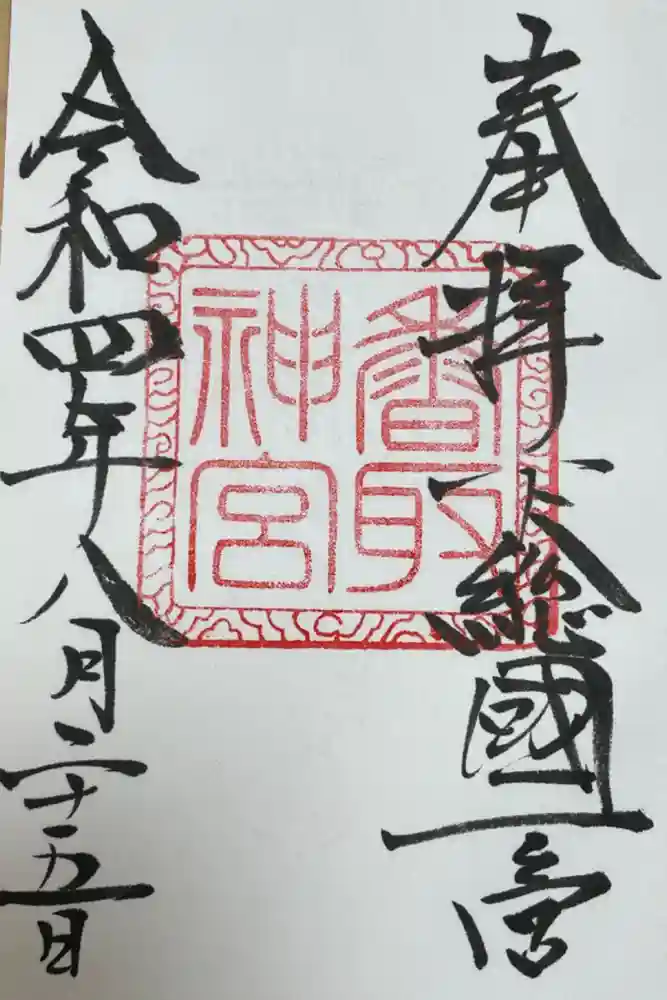 奉拝下總國一宮
香取
神宮
令和四年八月二十五日